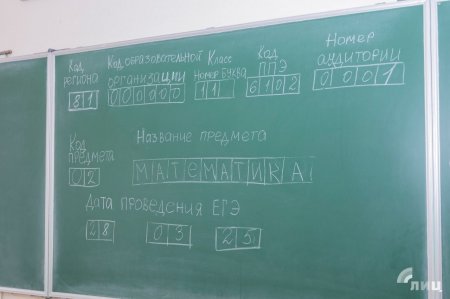 Код региона
81
Код образовательной организации
000000
Класс
Номер Буква
11
Код ППЭ
6102
Номер аудитории
0001
Код предмета
02
Название предмета
МАТЕМАТИКА
Дата проведения ЕГЭ
28 03 25
лиц